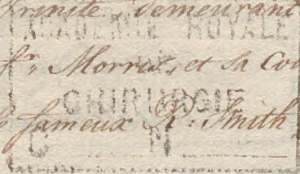 Trinité, demeurant
ACADEMIE ROYALE
fr. Morris, et sa Cou
CHIRURGIE
fameux R. Smith
C M